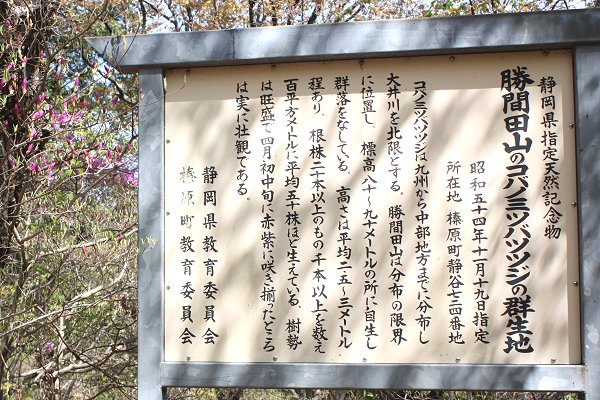 静岡県指定天然記念物
勝間田山のコバノミツバツツジの群生地
昭和五十四年十一月十九日指定
所在地 榛原町静谷七三四番地
コバノミツバツツジは九州から中部地方までに分布し
大井川を北限とする。勝間田山は分布の限界
に位置し、標高八十〜九十メートルの所に自生し
群落をなしている。高さは平均二・五〜三メートル
程あり、根株二十本以上のもの千本以上を数え
百平方メートルに平均五十株ほど生えている。樹勢
は旺盛で四月初中旬に赤紫に咲き揃ったところ
は実に壮観である。
静岡県教育委員会
榛原町教育委員会